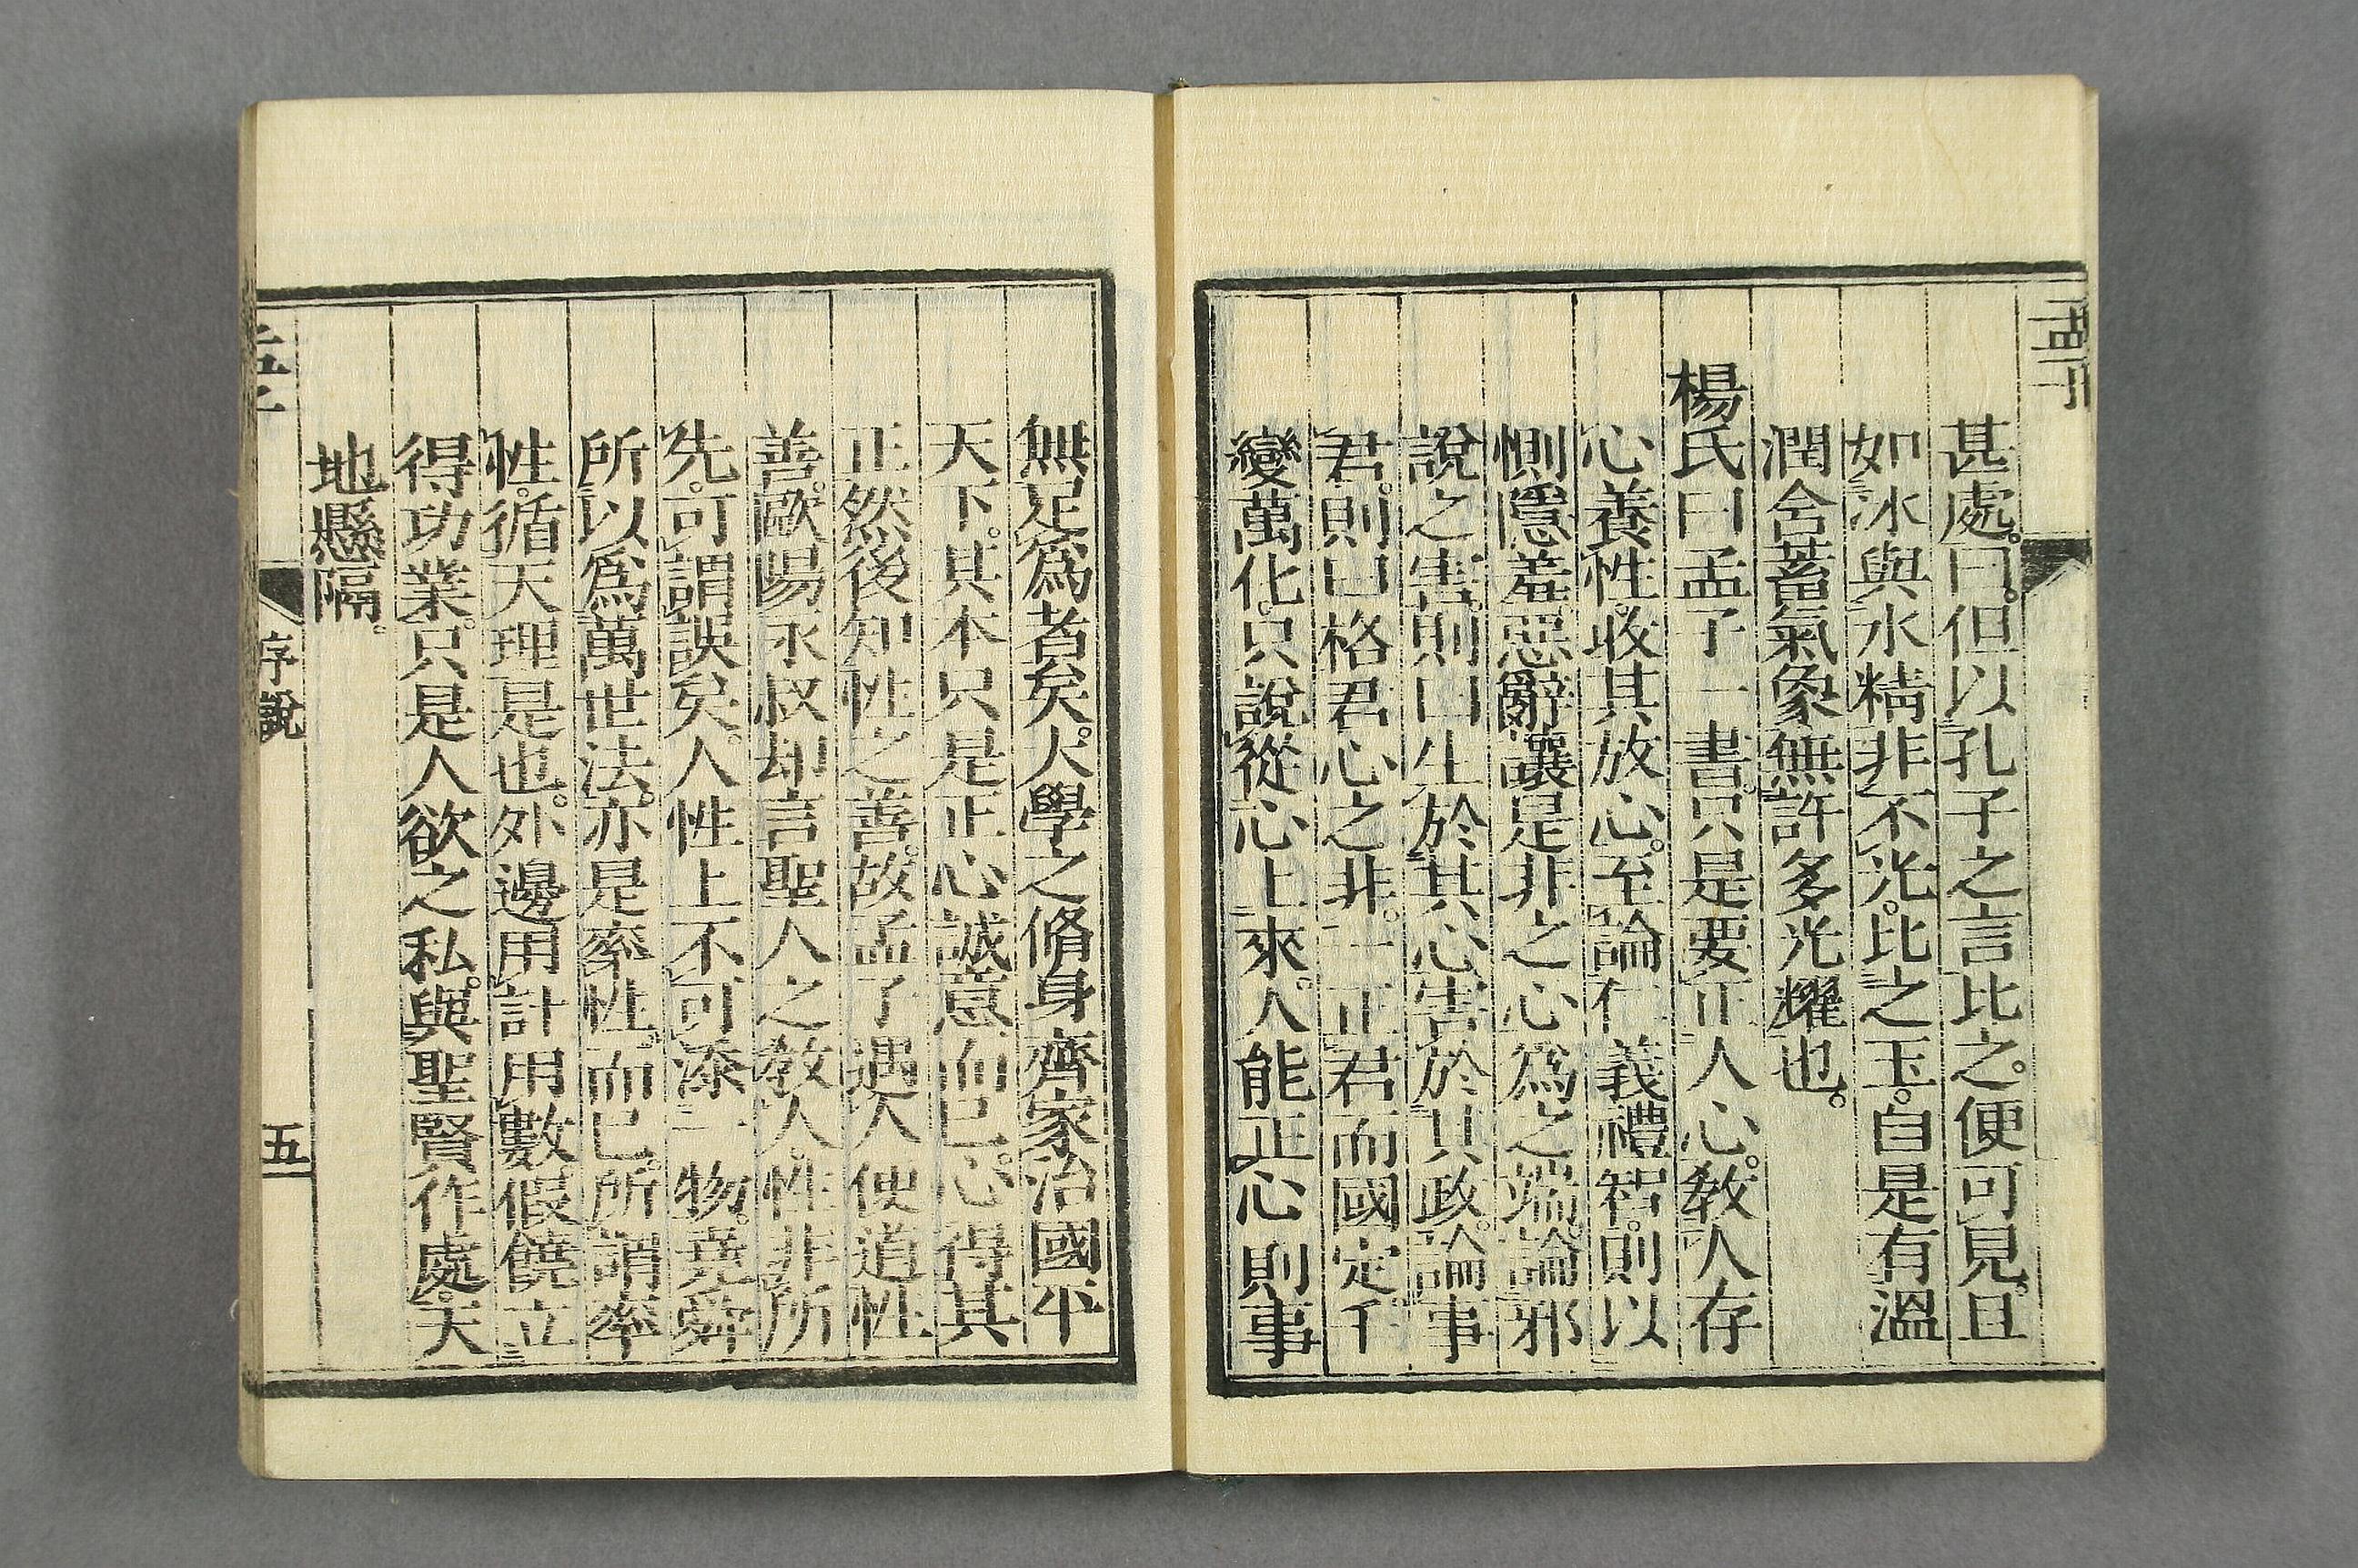 孟子
甚處。曰。但以孔子之言比之。便可見。且
如氷與水精非不光。比之玉。自是有溫
潤含蓄氣象無許多光耀也。
楊氏曰孟子一書。只是要正人心。敎人存
心養性。收其放心。至論仁義禮智。則以
惻隱羞惡辭讓是非之心爲之端。論邪
說之害。則曰生於其心害於其政。論事
君。則曰格君心之非。一正君而國定。千
變萬化。只說從心上來。人能正心則事
無足爲者矣。大學之脩身齊家治國平
天下。其本只是正心誠意而已。心得其
正然後知性之善。故孟子遇人便道性
善。歐陽永叔却言聖人之敎人。性非所
先。可謂誤矣。人性上不可添一物。堯舜
所以爲萬世法。亦是率性而已。所謂率
性。循天理是也。外邊用計用數假饒立
得功業。只是人欲之私。與聖賢作處。天
地懸隔。
孟子
序說
五